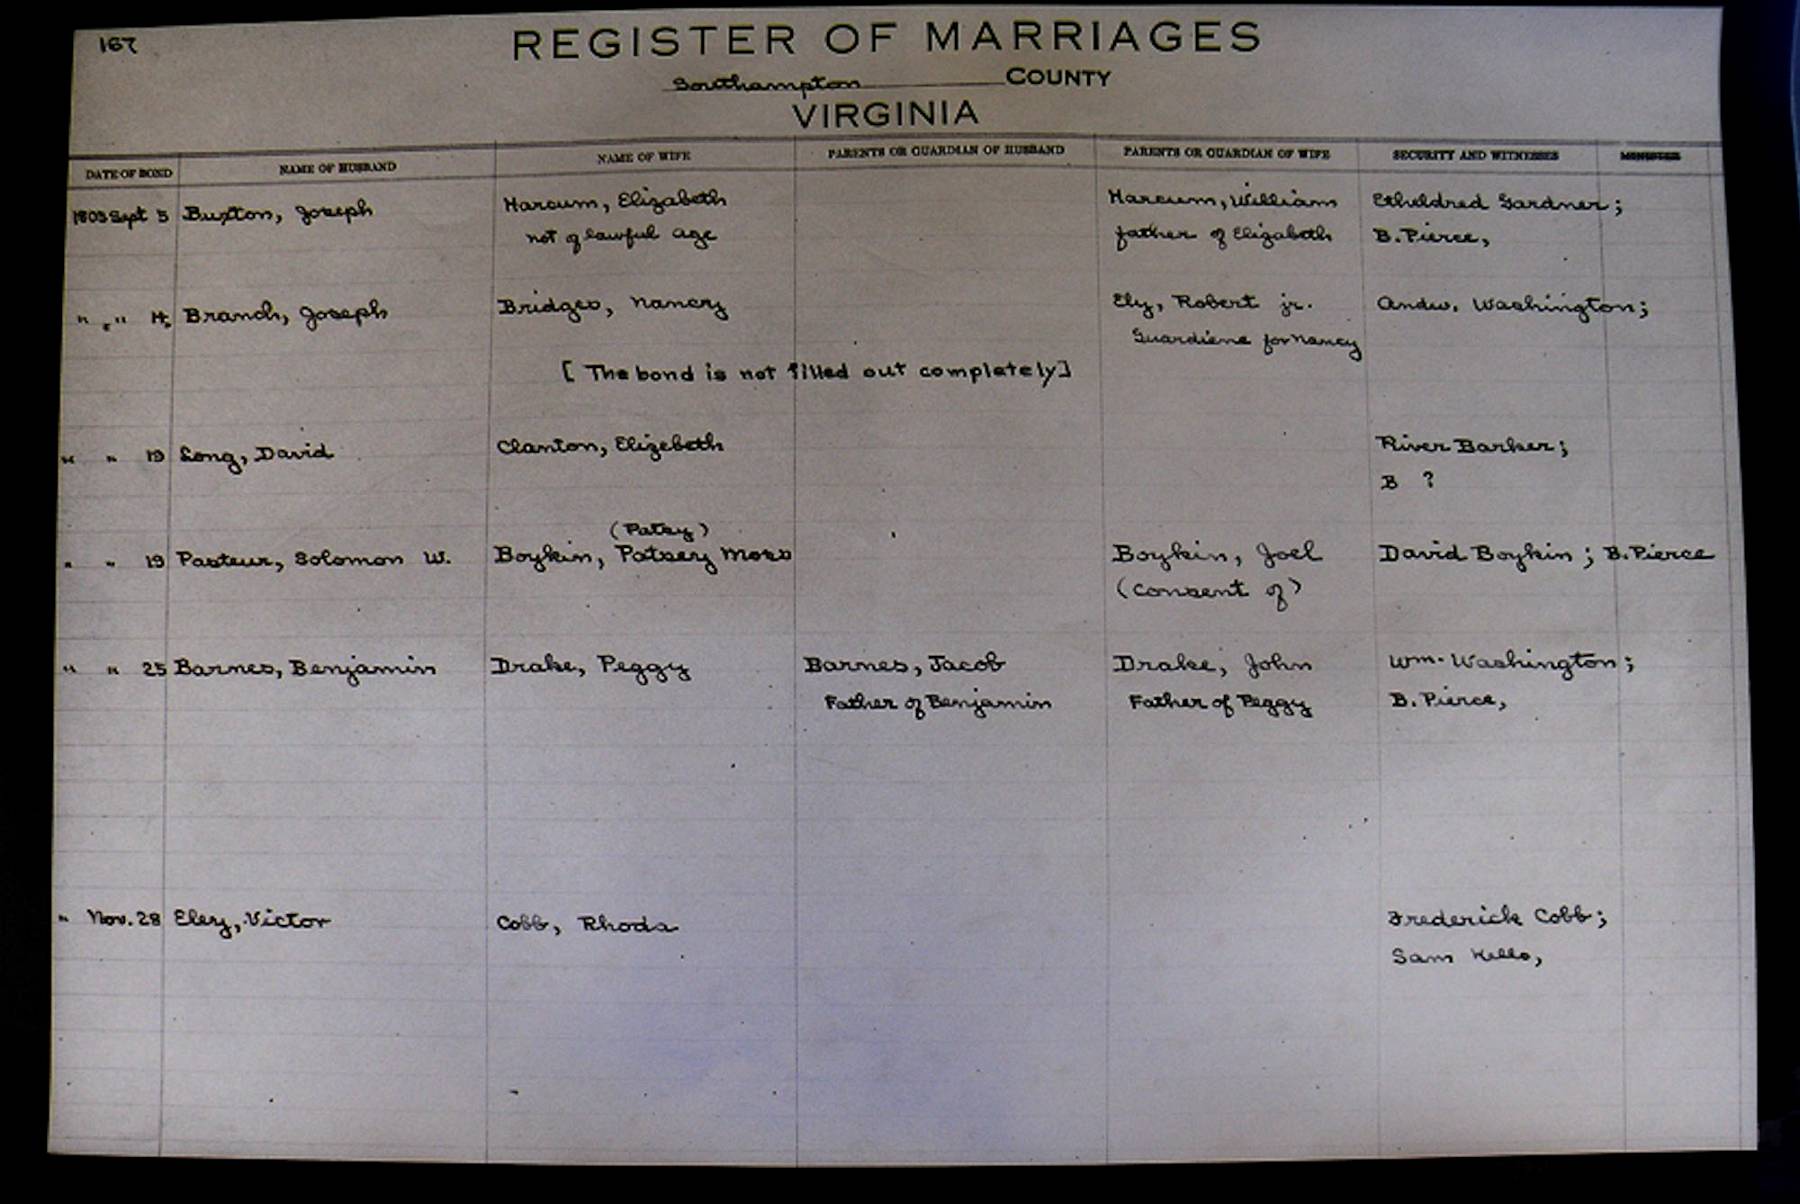 167
REGISTER OF MARRIAGES
Southampton COUNTY
VIRGINIA
DATE OF BOND NAME OF HUSBAND NAME OF WIFE PARENTS OR GUARDIAN OF HUSBAND PARENTS OR GUARDIAN OF WIFE SECURITY AND WITNESSES MINISTER
1803 Sept 5 Buxton, Joseph Harcum, Elizabeth Harcum, William Etheldred Gardner;
not of lawful age father of Elizabeth B. Pierce,
" " 14 Branch, Joseph Bridges, Nancy Ely, Robert jr. Andw. Washington;
Guardiene for Nancy
[ The bond is not filled out completely]
" " 19 Long, David Clanton, Elizebeth River Barker;
B ?
(Patsy)
" " 19 Pasteur, Solomon W. Boykin, Patsey Moss Boykin, Joel David Boykin ; B. Pierce
(consent of)
" " 25 Barnes, Benjamin Drake, Peggy Barnes, Jacob Drake, John Wm. Washington;
Father of Benjamin Father of Peggy B. Pierce,
" Nov. 28 Eley, Victor Cobb, Rhoda Frederick Cobb;
Sam Kello,